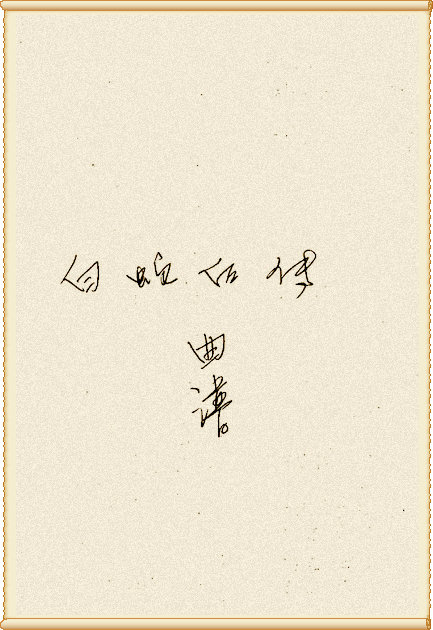 白蛇后传
曲
谱